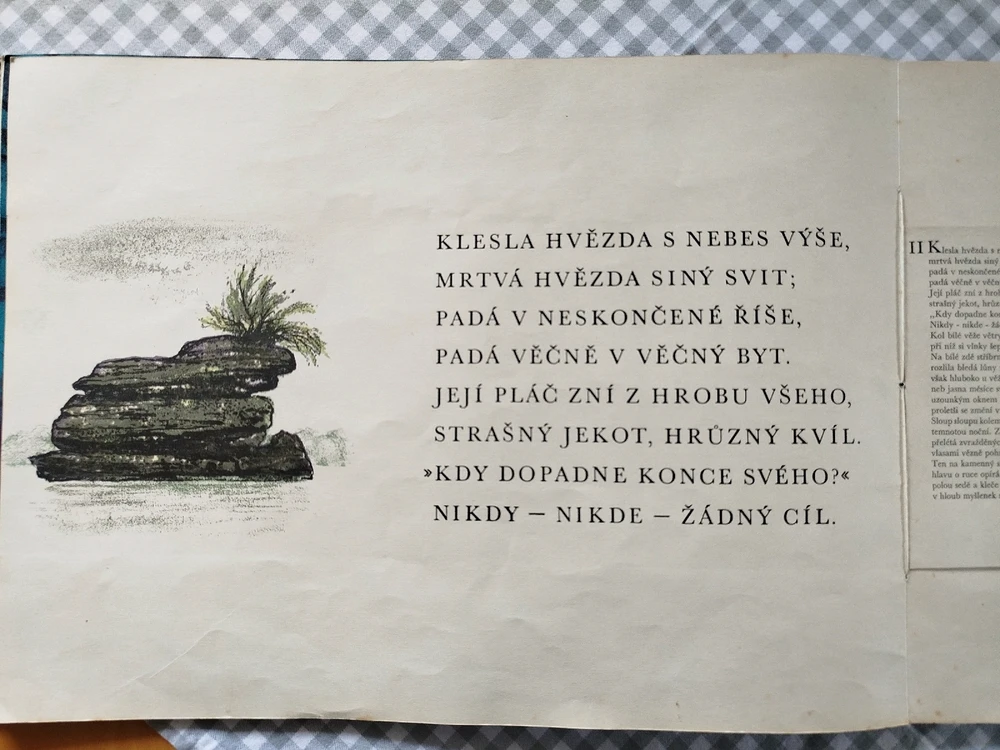 KLESLA HVĚZDA S NEBES VÝŠE,
MRTVÁ HVĚZDA SINÝ SVIT;
PADÁ V NESKONČENÉ ŘÍŠE,
PADÁ VĚČNĚ V VĚČNÝ BYT.
JEJÍ PLÁČ ZNÍ Z HROBU VŠEHO,
STRAŠNÝ JEKOT, HRŮZNÝ KVÍL.
»KDY DOPADNE KONCE SVÉHO?«
NIKDY – NIKDE – ŽÁDNÝ CÍL.
II Klesla hvězda s
mrtvá hvězda siný
padá v neskončené
padá věčně v
Její pláč zní z
strašný jekot,
„Kdy dopadne
Nikdy - nikde -
Kol bílé věže
při níž si vlnky
Na bílé zdi
rozlila bledá lůny
však hluboko u
neb jasna měsíce
uzounkým oknem
proletši se změní v
Sloup sloupu
temnotou noční.
přelétá
vlasami vězně
Ten na kamenný
hlavu o ruce
polou sedě a
v hloub myšlenek